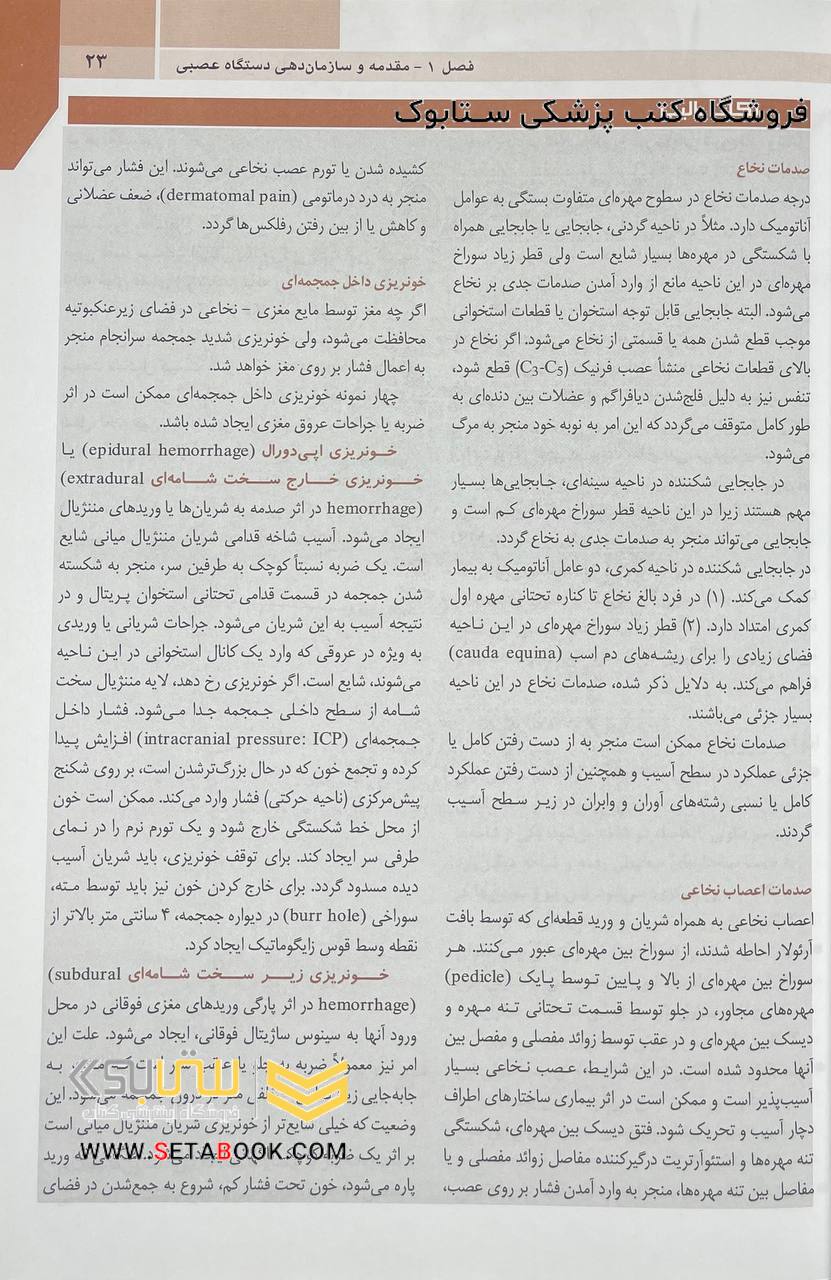 ۲۳
فصل ۱ - مقدمه و سازمان‌دهی دستگاه عصبی
فروشگاه کتب پزشکی ستابوک
صدمات نخاع
درجه صدمات نخاع در سطوح مهره‌ای متفاوت بستگی به عوامل
آناتومیک دارد. مثلاً در ناحیه گردنی، جابجایی یا جابجایی همراه
با شکستگی در مهره‌ها بسیار شایع است ولی قطر زیاد سوراخ
مهره‌ای در این ناحیه مانع از وارد آمدن صدمات جدی بر نخاع
می‌شود. البته جابجایی قابل توجه استخوان یا قطعات استخوانی
موجب قطع شدن همه یا قسمتی از نخاع می‌شود. اگر نخاع در
بالای قطعات نخاعی منشأ عصب فرنیک (C3-C5) قطع شود،
تنفس نیز به دلیل فلج‌شدن دیافراگم و عضلات بین دنده‌ای به
طور کامل متوقف می‌گردد که این امر به نوبه خود منجر به مرگ
می‌شود.
در جابجایی شکننده در ناحیه سینه‌ای، جـابجایی‌ها بسیار
مهم هستند زیرا در این ناحیه قطر سوراخ مهره‌ای کـم است و
جابجایی می‌تواند منجر به صدمات جدی به نخاع گردد.
در جابجایی شکننده در ناحیه کمری، دو عامل آناتومیک به بیمار
کمک می‌کند. (۱) در فرد بالغ نخاع تا کناره تحتانی مهره اول
کمری امتداد دارد. (۲) قطر زیاد سوراخ مهره‌ای در ایـن نـاحیه
فضای زیادی را برای ریشـه‌های دم اسب (cauda equina)
فراهم می‌کند. به دلایل ذکر شده، صدمات نخاع در این ناحیه
بسیار جزئی می‌باشند.
صدمات نخاع ممکن است منجر به از دست رفتن کامل یا
جزئی عملکرد در سطح آسیب و همچنین از دست رفتن عملکرد
کامل یا نسبی رشته‌های آوران و وابران در زیـر سـطح آسـیب
گردند.
صدمات اعصاب نخاعی
اعصاب نخاعی به همراه شریان و ورید قطعه‌ای که توسط بافت
آرئولار احاطه شدند، از سوراخ بین مهره‌ای عبور مـی‌کنند. هـر
سوراخ بین مهره‌ای از بالا و پـایین تـوسط پـایک (pedicle)
مهره‌های مجاور، در جلو توسط قسمت تـحتانی تـنه مـهره و
دیسک بین مهره‌ای و در عقب توسط زوائد مفصلی و مفصل بین
آنها محدود شده است. در این شرایـط، عـصب نـخاعی بسـیار
آسیب‌پذیر است و ممکن است در اثر بیماری ساختارهای اطراف
دچار آسیب و تحریک شود. فتق دیسک بین مهره‌ای، شکستگی
تنه مهره‌ها و استئوآرتریت درگیرکننده مفاصل زوائد مفصلی و یا
مفاصل بین تنه مهره‌ها، منجر به وارد آمدن فشار بر روی عصب،
کشیده شدن یا تورم عصب نخاعی می‌شوند. این فشار می‌تواند
منجر به درد درماتومی (dermatomal pain)، ضعف عضلانی
و کاهش یا از بین رفتن رفلکس‌ها گردد.
خونریزی داخل جمجمه‌ای
اگر چه مغز توسط مایع مغزی - نخاعی در فضای زیرعنکبوتیه
محافظت می‌شود، ولی خونریزی شدید جمجمه سرانجام منجر
به اعمال فشار بر روی مغز خواهد شد.
چهار نمونه خونریزی داخل جمجمه‌ای ممکن است در اثر
ضربه یا جراحات عروق مغزی ایجاد شده باشد.
خـونریزی اپـی‌دورال (epidural hemorrhage) یـا
خـونریزی خـارج سـخت شـامه‌ای (extradural
hemorrhage) در اثر صدمه به شریان‌ها یا وریدهای مننژیال
ایجاد می‌شود. آسیب شاخه قدامی شریان مننژیال میانی شایع
است. یک ضربه نسبتاً کوچک به طرفین سر، منجر به شکسته
شدن جمجمه در قسمت قدامی تحتانی استخوان پریتال و در
نتیجه آسیب به این شریان می‌شود. جراحات شریانی یا وریدی
به ویژه در عروقی که وارد یک کانال استخوانی در ایـن نـاحیه
می‌شوند، شایع است. اگر خونریزی رخ دهد، لایه مننژیال سخت
شـامه از سـطح داخـلی جـمجمه جـدا مـی‌شود. فشـار داخـل
جـمجمه‌ای (intracranial pressure: ICP) افـزایش پـیدا
کرده و تجمع خون که در حال بزرگ‌ترشدن است، بر روی شکنج
پیش‌مرکزی (ناحیه حرکتی) فشار وارد می‌کند. ممکن است خون
از محل خط شکستگی خارج شود و یک تورم نرم را در نـمای
طرفی سر ایجاد کند. برای توقف خونریزی، باید شریان آسیب
دیده مسدود گردد. برای خارج کردن خون نیز باید توسط مـته،
سوراخی (burr hole) در دیواره جمجمه، ۴ سانتی متر بالاتر از
نقطه وسط قوس زایگوماتیک ایجاد کرد.
خـونریزی زیـر سـخت شـامه‌ای (subdural
hemorrhage) در اثر پارگی وریدهای مغزی فوقانی در محل
ورود آنها به سینوس ساژیتال فوقانی، ایجاد می‌شود. علت این
امر نیز معمولاً ضربه به جلو یا عقب سر است که به
جابه‌جایی در درون جمجمه می‌شود. این
وضعیت که خیلی شایع‌تر از خونریزی شریان مننژیال میانی است
بر اثر یک ضربه کوچک ورید
پاره می‌شود، خون تحت فشار کم، شروع به جمع‌شدن در فضای
ستابوک
فروشگاه اینترنتی کتاب
WWW.SETABOOK.COM